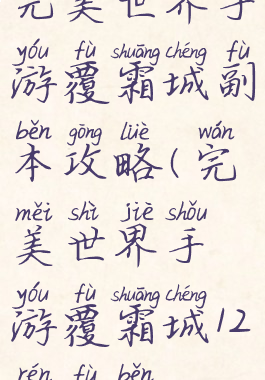 完美世界手
yóu fù shuāng chéng fù
游覆霜城副
běn gōng lüè wán
本攻略(完
měi shì jiè shǒu
美世界手
yóu fù shuāng chéng
游覆霜城12
rén fù běn